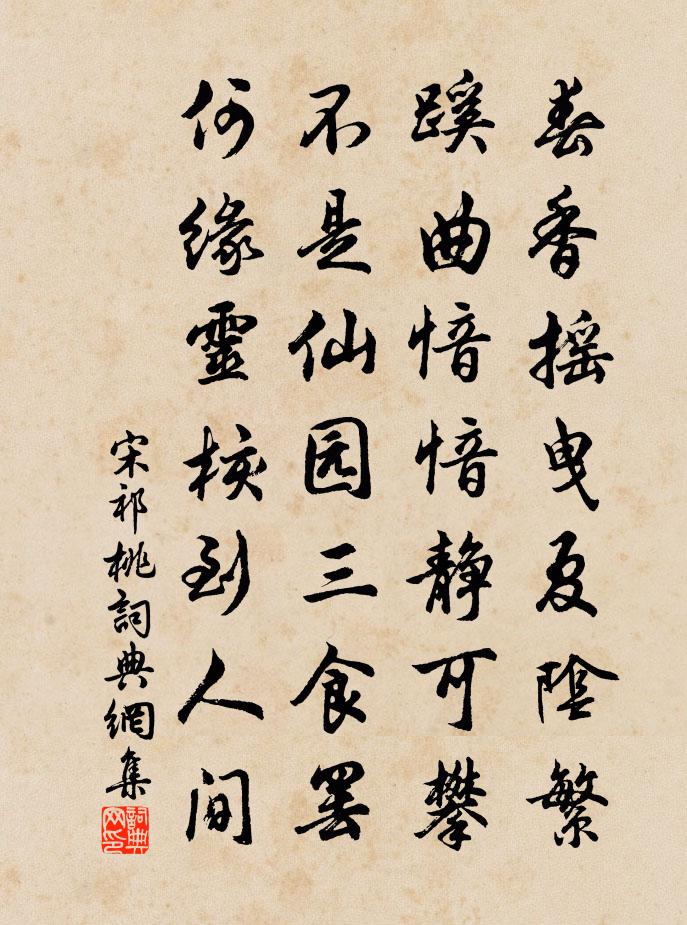 春香摇曳夏陰繁
蹊曲愔愔静可攀
不是仙园三食罢
何缘靈核到人间
宋祁桃詞典網集
詞典网印